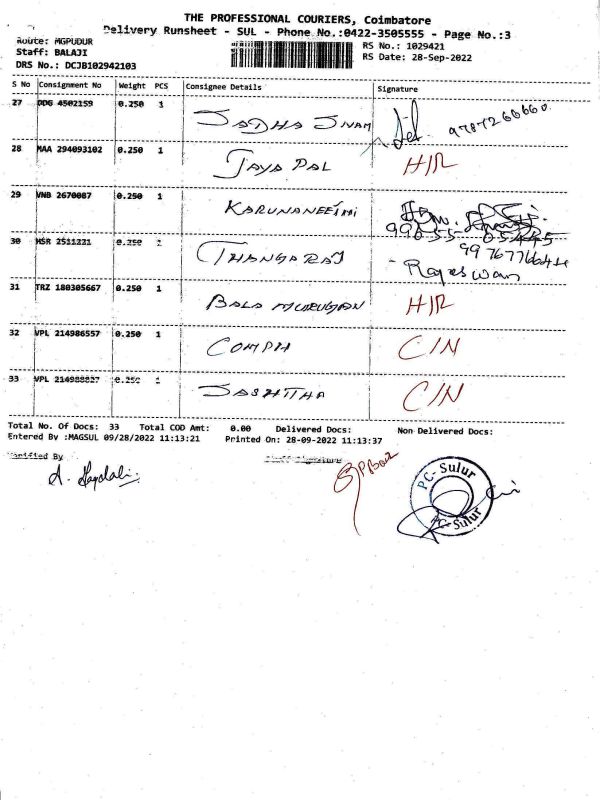 THE PROFESSIONAL COURIERS, Coimbatore
Delivery Runsheet - SUL - Phone No.:0422-3505555 - Page No.:3
Route: MGPUDUR
RS No.: 1029421
Staff: BALAJI
RS Date: 28-Sep-2022
DRS No.: DCJB102942103
S No Consignment No Weight PCS Consignee Details Signature
27 DDG 4502159 0.250 1 9787266660
28 MAA 294093102 0.250 1 JAYA PAL H/R
29 VNB 2670087 0.250 1 KARUNANEETHI
30 MSR 2511221 0.250 1 THANGARAJ
Rajeswari
31 TRZ 180305667 0.250 1 BALA MURUGAN H/R
32 VPL 214986557 0.250 1 C/N
33 VPL 214988827 0.250 1 C/N
Total No. Of Docs: 33 Total COD Amt: 0.00 Delivered Docs: Non Delivered Docs:
Entered By :MAGSUL 09/28/2022 11:13:21 Printed On: 28-09-2022 11:13:37
Verified By Staff Signature
PC- Sulur
PC-Sulur